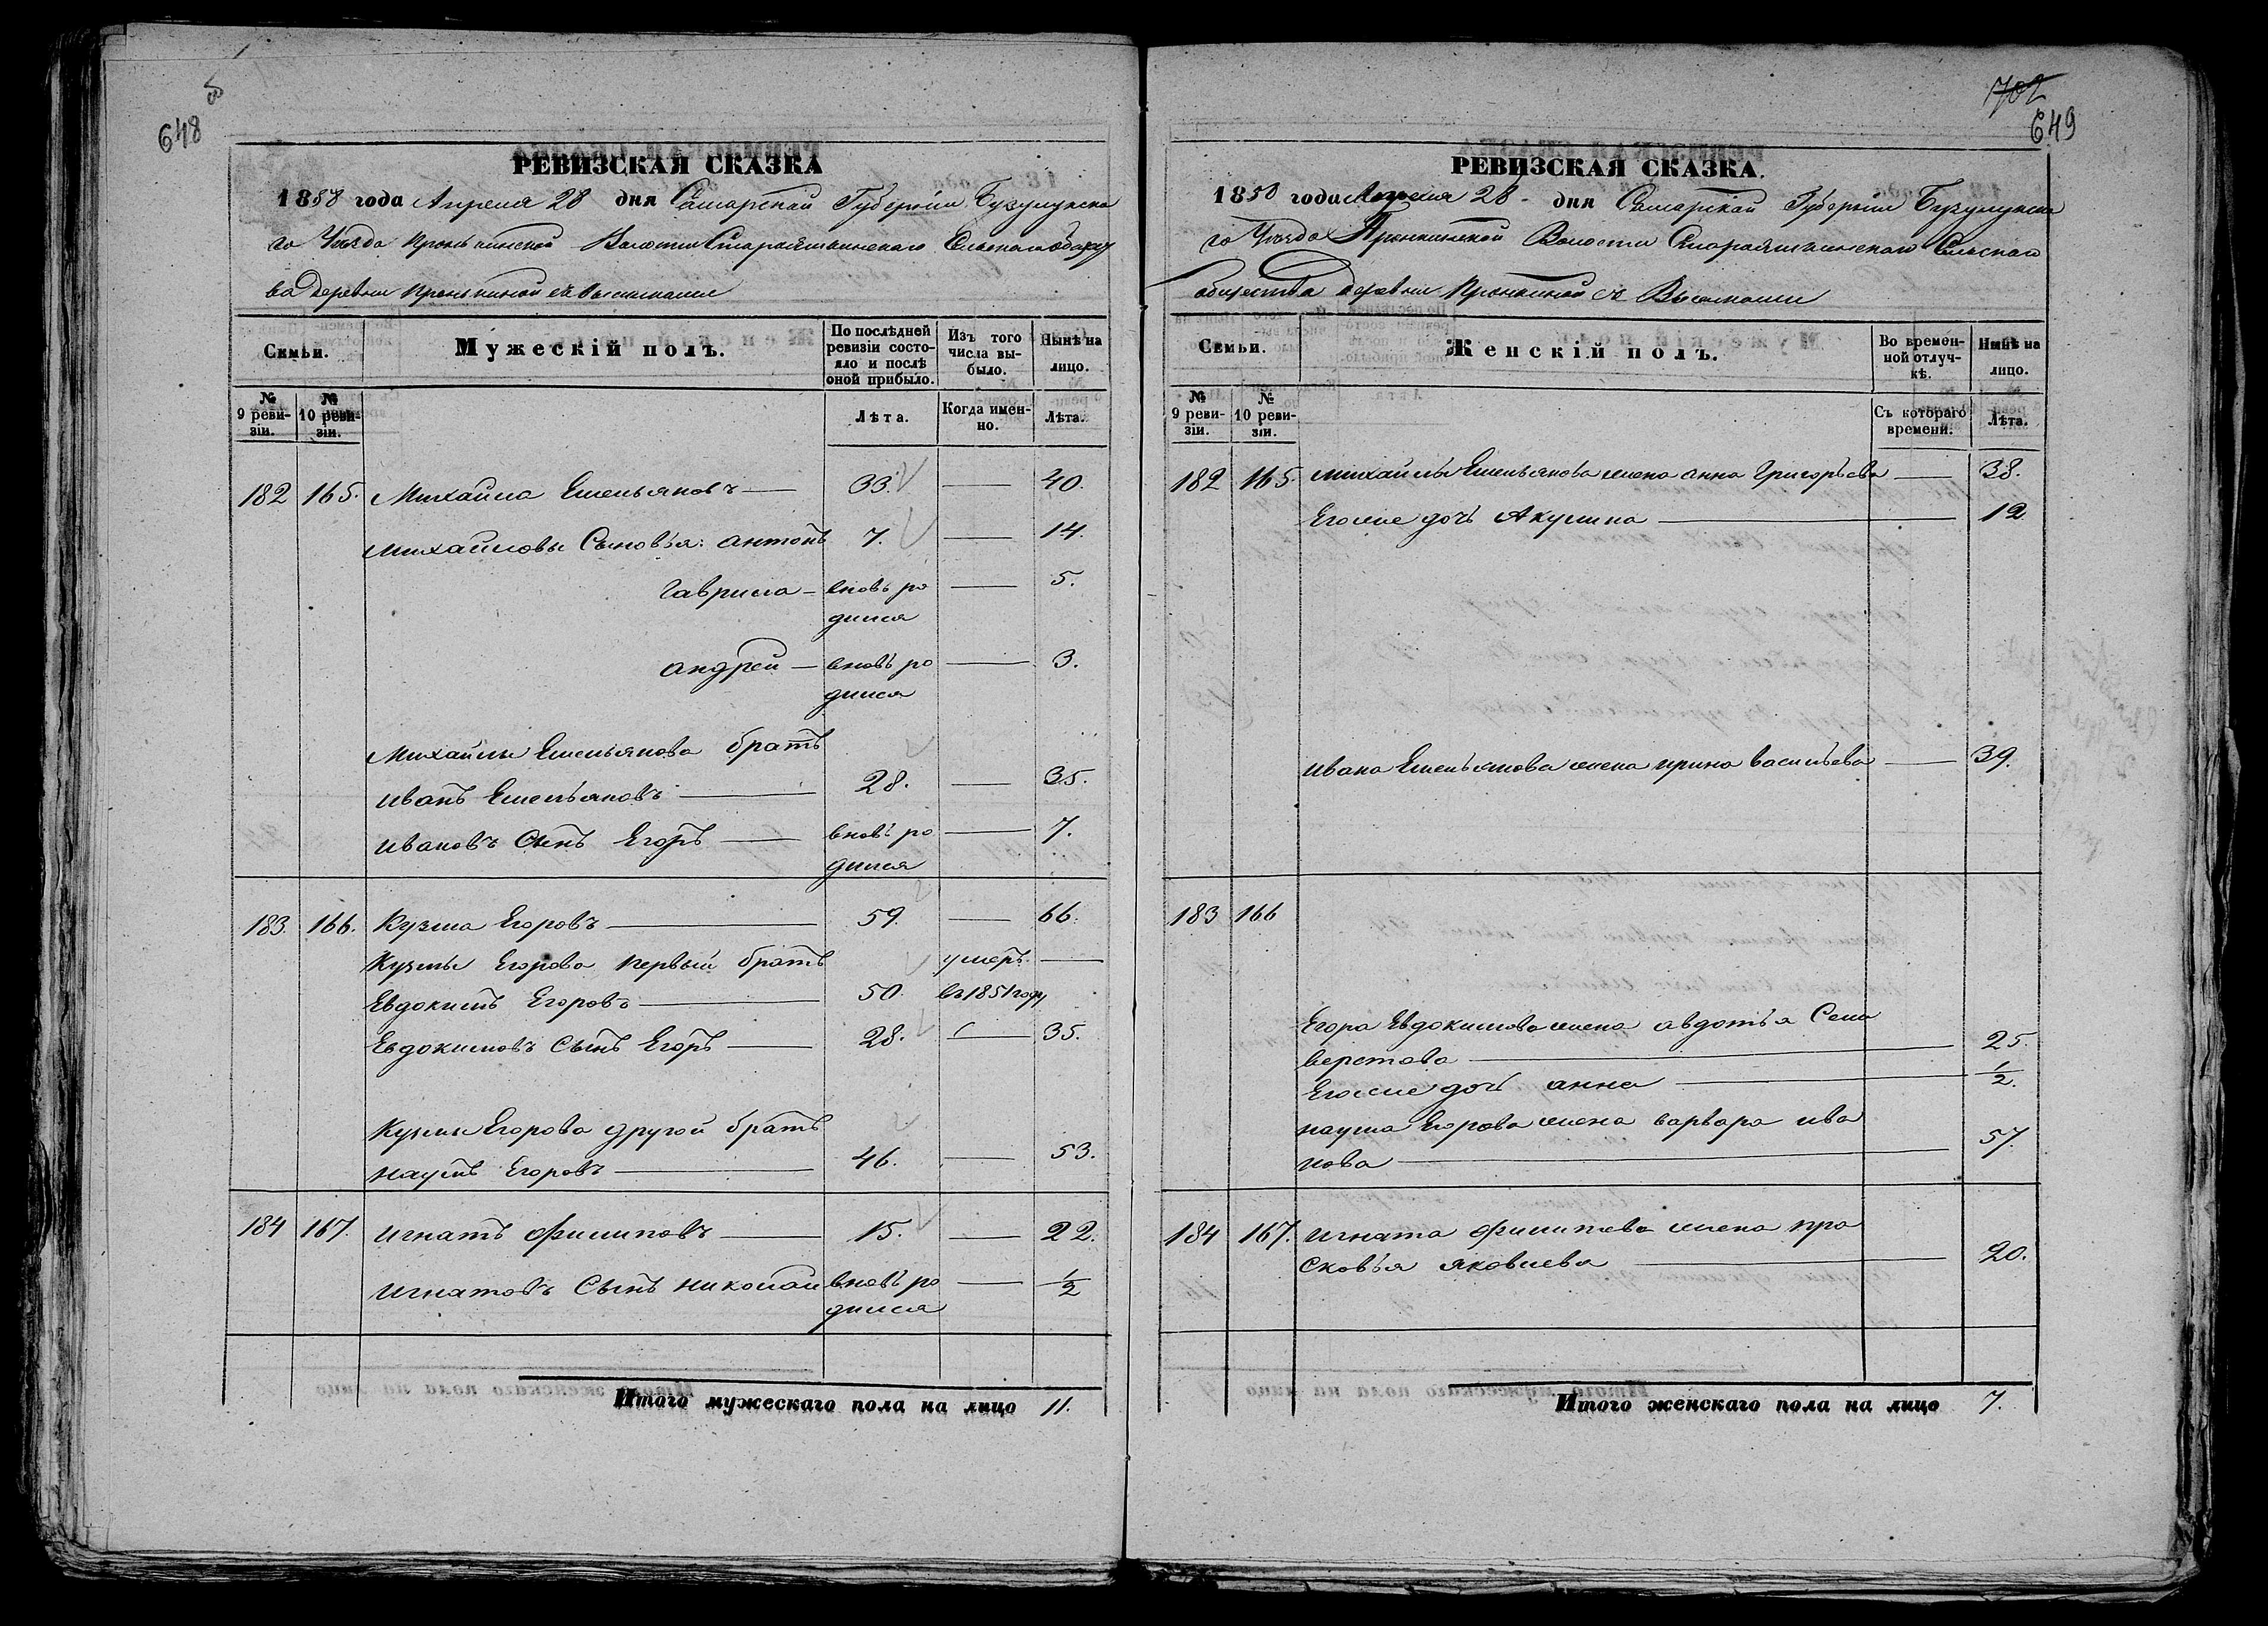 648
РЕВИЗСКАЯ СКАЗКА
1858 года Апреля 28 дня Самарской Губернии Бузулукска
го Уезда Пронькинской Волости Сельскаго
ва деревни Пронькиной
Семьи.
Мужескій полъ.
По послѣдней
ревизіи состо-
яло и послѣ
оной прибыло.
Изъ того
числа вы-
было.
Нынѣ на
лицо.
№
9 реви-
зіи.
№
10 реви-
зіи.
Лѣта.
Когда имен-
но.
Лѣта.
182 165. Михайла Емельяновъ — 33. — 40.
Михайловы Сыновья: антонъ 7. — 14.
гаврила — вновь ро — 5.
дился
андрей — вновь ро — 3.
дился
Михайлы Емельянова братъ
иванъ Емельяновъ — 28. — 35.
ивановъ Сынъ Егоръ — вновь ро — 7.
дился
183. 166. Кузма Егоровъ — 59. — 66.
Кузмы Егорова первый братъ умеръ —
Евдокимъ Егоровъ — 50. въ 1851 году
Евдокимовъ Сынъ Егоръ — 28. — 35.
Кузмы Егорова другой братъ
наумъ Егоровъ — 46. — 53.
184 167. игнатъ филиповъ — 15. — 22.
игнатовъ Сынъ николай вновь ро — 1/2
дился
Итого мужескаго пола на лицо 11.
702
649
РЕВИЗСКАЯ СКАЗКА.
1858 года Апреля 28 дня Самарской Губернии Бузулукска
го Уезда Пронкинской Волости Сельскаго
общества деревни Пронкиной
Семьи.
Женскій полъ.
Во времен-
ной отлуч-
кѣ.
Нынѣ на
лицо.
№
9 реви-
зіи.
№
10 реви-
зіи.
Съ котораго
времени.
Лѣта.
182 165. михайлы Емельянова жена анна Григорьева — 38.
Егоже дочь Акулина — 12.
ивана Емельянова жена ирина васильева — 39.
183 166
Егора Евдокимова жена авдотья Сели
верстова — 25.
Егоже дочь анна — 1/2.
наума Егорова жена варвара ива
нова — 57.
184 167. игната филипова жена пра
сковья яковлева — 20.
Итого женскаго пола на лицо 7.